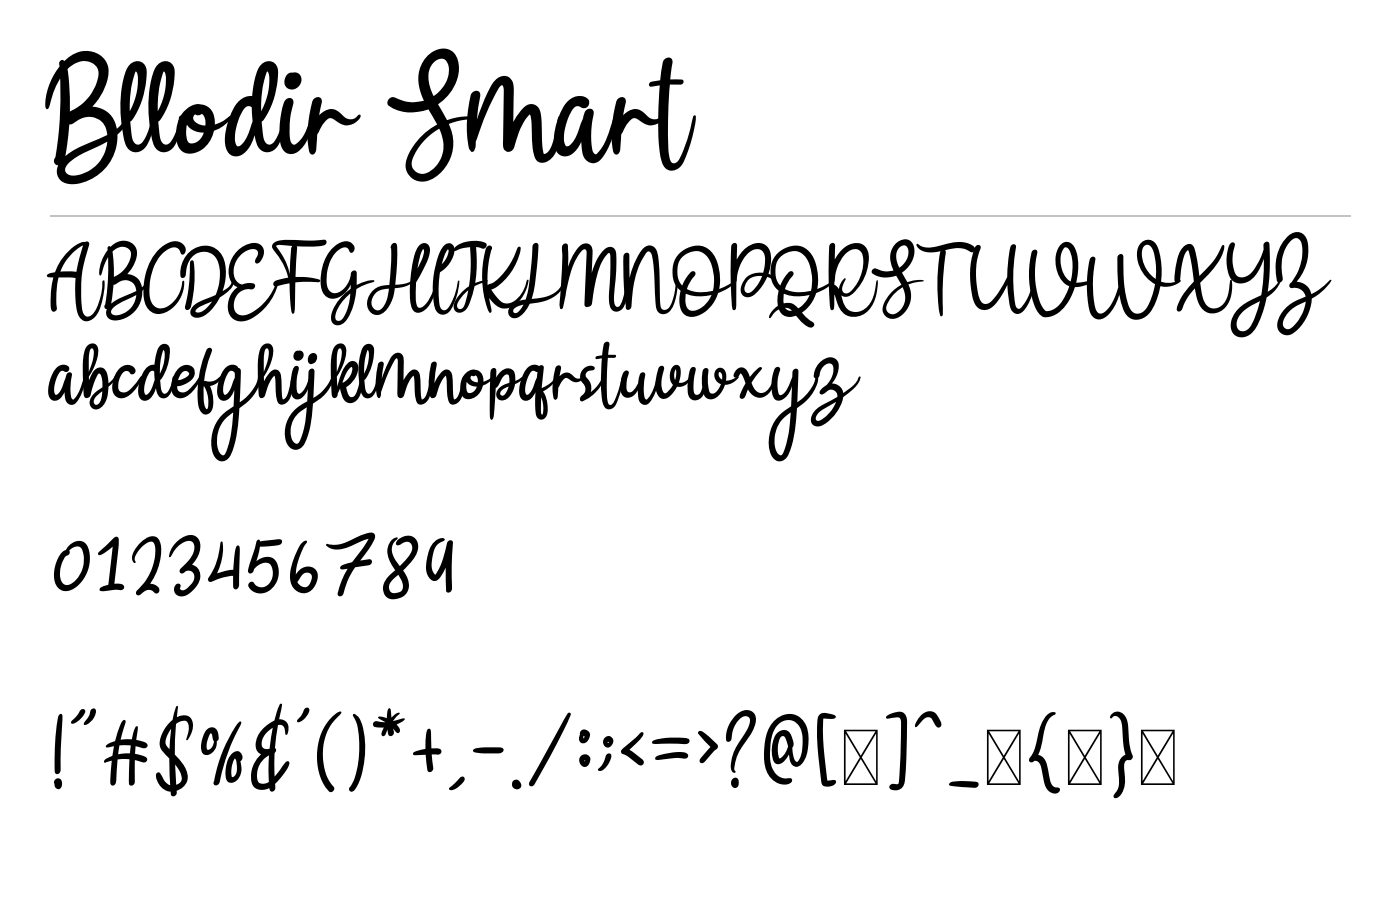 Bllodir Smart
ABCDEFGHIJKLMNOPQRSTUVWXYZ
abcdefghijklmnopqrstuvwxyz
0123456789
!"#$%&'()*+,-./:;<=>?@[]^_{}